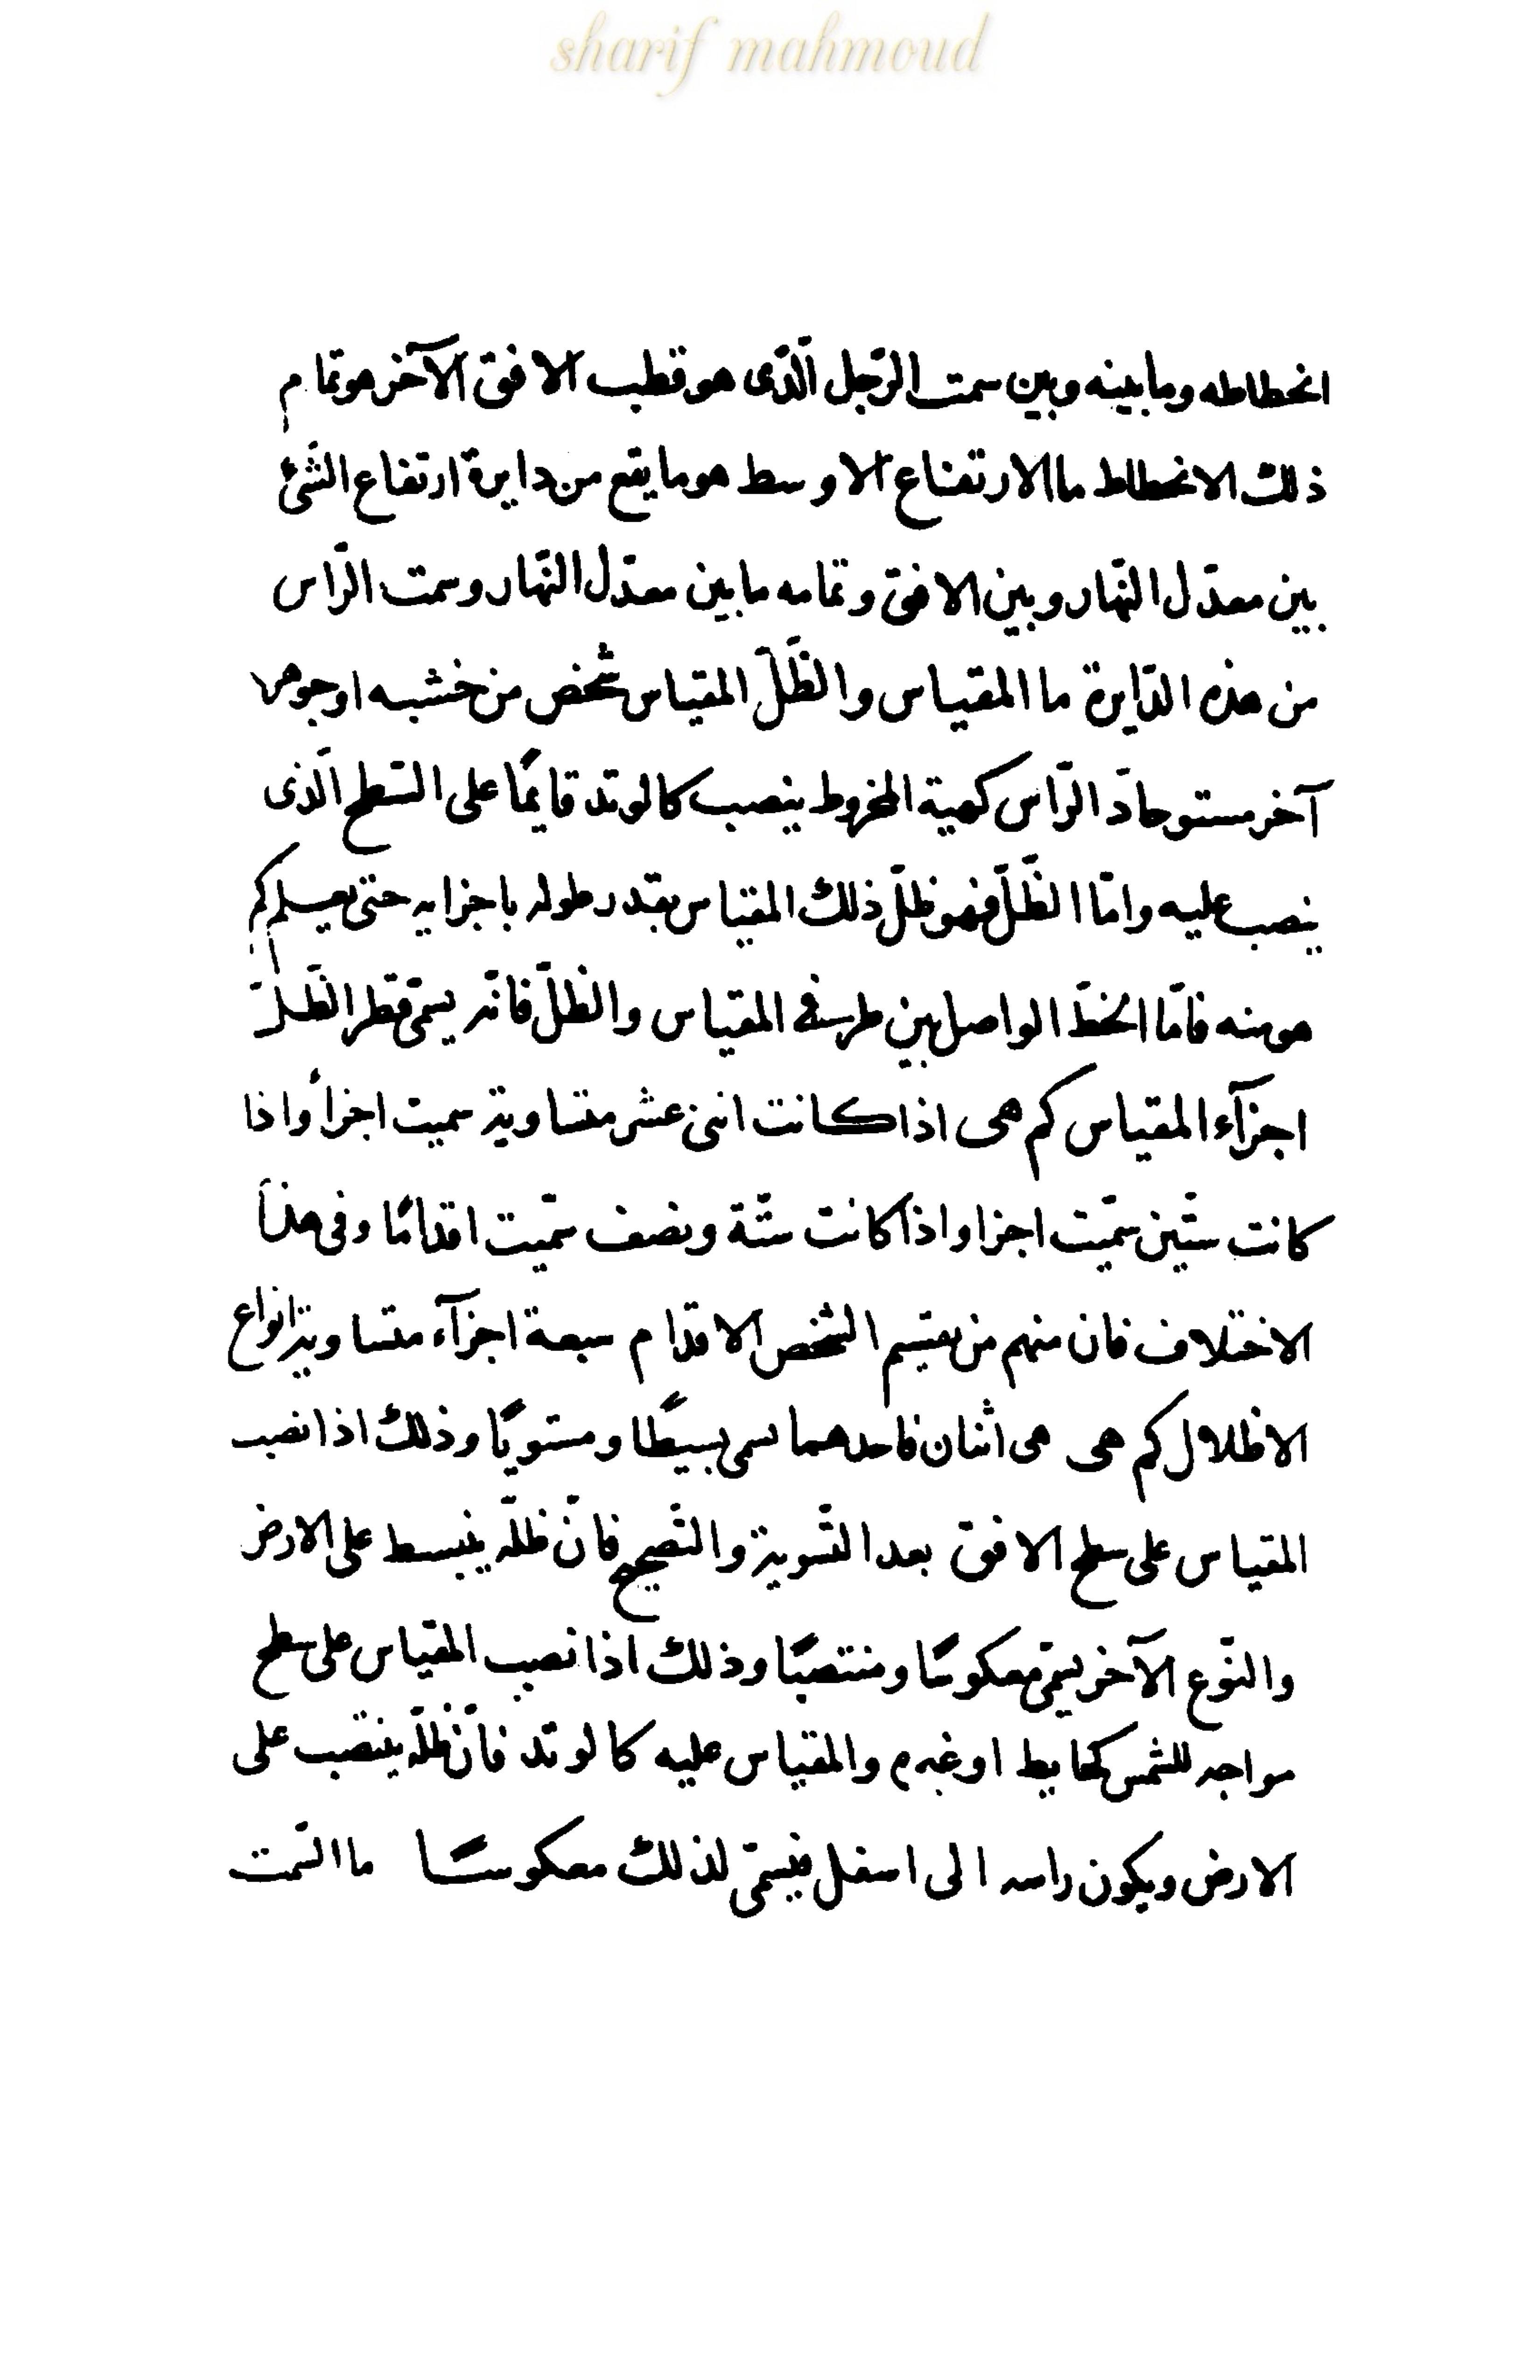 sharif mahmoud
انحطاطه وما بينه وبين سمت الرّجل الّذى هو قطب الافق الآخر هو تمام
ذلك الانحطاط ما الارتفاع الاوسط هو ما يقع من دايرة ارتفاع الشّئ
بين معدّل النّهار وبين الافق وتمامه ما بين معدّل النّهار وسمت الرّاس
من هذه الدّايرة ما المقياس والظّلّ المقياس شخص من خشبه او جوهر
آخر مستو حادّ الرّاس كهية المخروط ينصب كالوتد قايمًا على السّطح الّذى
ينصب عليه وامّا الظّلّ فهو ظلّ ذلك المقياس بقدر طوله باجزايه حتى يعلم كم
هو منه فامّا الخطّ الواصل بين طرفى المقياس والظلّ فانّه يسمّى قطر الظّلّ
اجزآء المقياس كم هى اذا كانت اثنى عشر متساوية سميت اجزأ واذا
كانت ستّين سمّيت اجزا واذا كانت ستّة ونصف سمّيت اقدامًا وفى هذا
الاختلاف فان منهم من يقسم الشخص الاقدام سبعة اجزآء متساوية انواع
الاظلال كم هى هى اثنان فاحدهما يسمى بسيطًا ومستويًا وذلك اذا نصب
المقياس على سطح الافق بعد التّسوية والتّصحيح فانّ ظلّه ينبسط على الارض
والنّوع الآخر يسمّى معكوسًا ومنتصبًا وذلك اذا نصب المقياس على سطح
مواجه للشمس كحايط او غيره والمقياس عليه كالوتد فانّ ظلّه ينتصب على
الارض ويكون راسه الى اسفل فيسمّى لذلك معكوسًا ما السّمت